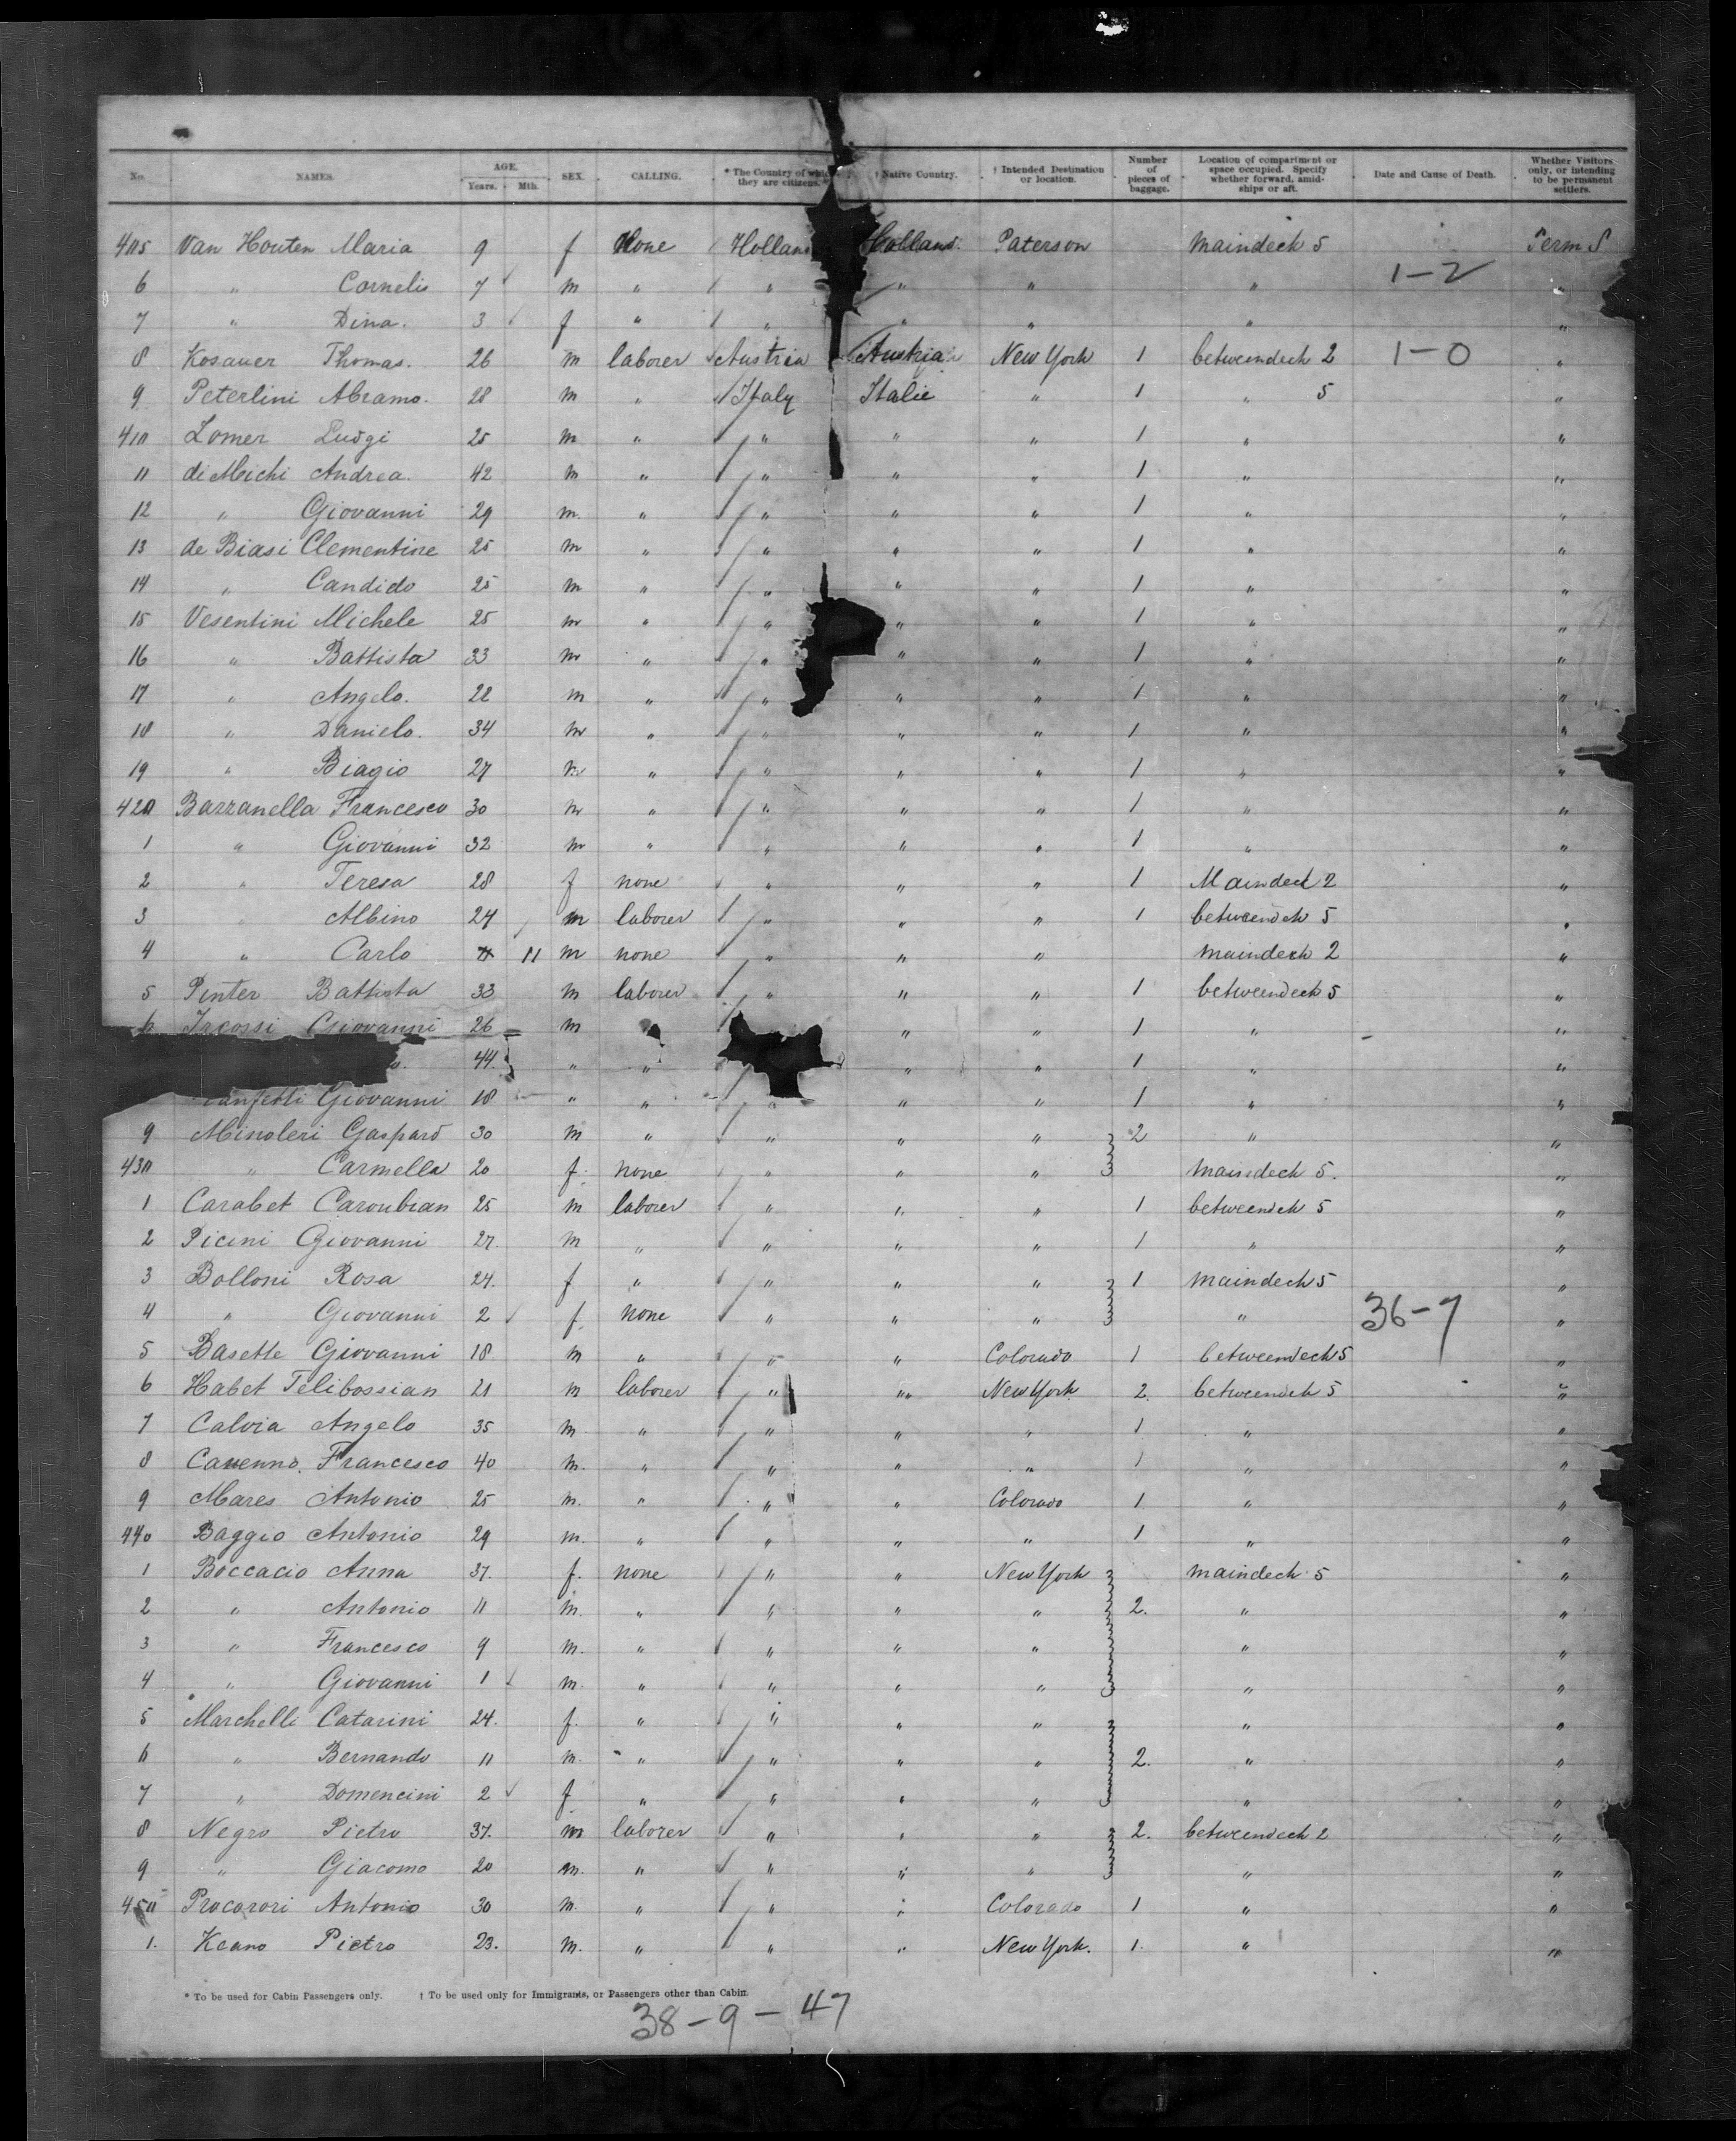 No. NAMES. AGE. Years. Mth. SEX. CALLING. * The Country of which they are citizens. † Native Country. † Intended Destination or location. Number of pieces of baggage. Location of compartment or space occupied. Specify whether forward, amidships or aft. Date and Cause of Death. Whether Visitors only, or intending to be permanent settlers.
405 Van Houten Maria 9 f None Holland Holland. Paterson Maindeck 5 Perm S
1-2
6 " Cornelis 7 m " " " " " "
7 " Dina. 3 f " " " " " "
8 Kosauer Thomas. 26 m laborer Austria Austria New York 1 betweendeck 2 1-0 "
9 Peterlini Abramo. 28 m " Italy Italie " 1 " 5 "
410 Lomer Luigi 25 m " " " " 1 " "
11 di Michi Andrea. 42 m " " " " 1 " "
12 " Giovanni 29 m. " " " " 1 " "
13 de Biasi Clementine 25 m " " " " 1 " "
14 " Candido 25 m " " " " 1 " "
15 Vesentini Michele 25 m " " " " 1 " "
16 " Battista 33 m " " " " 1 " "
17 " Angelo. 22 m " " " " 1 " "
18 " Danielo. 34 m " " " " 1 " "
19 " Biagio 27 m " " " " 1 " "
420 Bazzanella Francesco 30 m " " " " 1 " "
1 " Giovanni 32 m " " " " 1 " "
2 " Teresa 28 f none " " " 1 Maindeck 2 "
3 " Albino 24 m laborer " " " 1 betweendek 5 "
4 " Carlo 11 m none " " " maindeck 2 "
5 Pinter Battista 33 m laborer " " " 1 betweendeck 5 "
6 Giovanni 26 m " " 1 " "
44. " " " " 1 " "
Giovanni 18 " " " " " 1 " "
9 Minoleri Gaspard 30 m " " " " 2 " "
430 " Carmella 20 f. none " " " maindeck 5. "
1 Carabet Caroubian 25 m laborer " " " 1 betweendek 5 "
2 Picini Giovanni 27. m " " " " 1 " "
3 Bolloni Rosa 24. f " " " " 1 maindeck 5 "
4 " Giovanni 2 f. none " " " " 36-7 "
5 Basette Giovanni 18 m " " " Colorado 1 betweendeck 5 "
6 Habet Telibossian 21 m laborer " " New York 2. betweendek 5 "
7 Calvia Angelo 35 m. " " " " 1 " "
8 Francesco 40 m. " " " " 1 " "
9 Mares Antonio 25 m. " " " Colorado 1 " "
440 Baggio Antonio 29 m. " " " " 1 " "
1 Boccacio Anna 37. f. none " " New York maindeck 5 "
2 " Antonio 11 m. " " " " 2. " "
3 " Francesco 9 m. " " " " " "
4 " Giovanni 1 m. " " " " " "
5 Marchelli Catarini 24. f. " " " " " "
6 " Bernando 11 m. " " " " 2. " "
7 " Domencini 2 f. " " " " " "
8 Negro Pietro 37. m laborer " " " 2. betweendeck 2 "
9 " Giacomo 20 m. " " " " " "
450 Procorori Antonio 30 m. " " " Colorado 1 " "
1. Keano Pietro 23. m. " " " New York. 1. " "
* To be used for Cabin Passengers only. † To be used only for Immigrants, or Passengers other than Cabin.
38-9-47